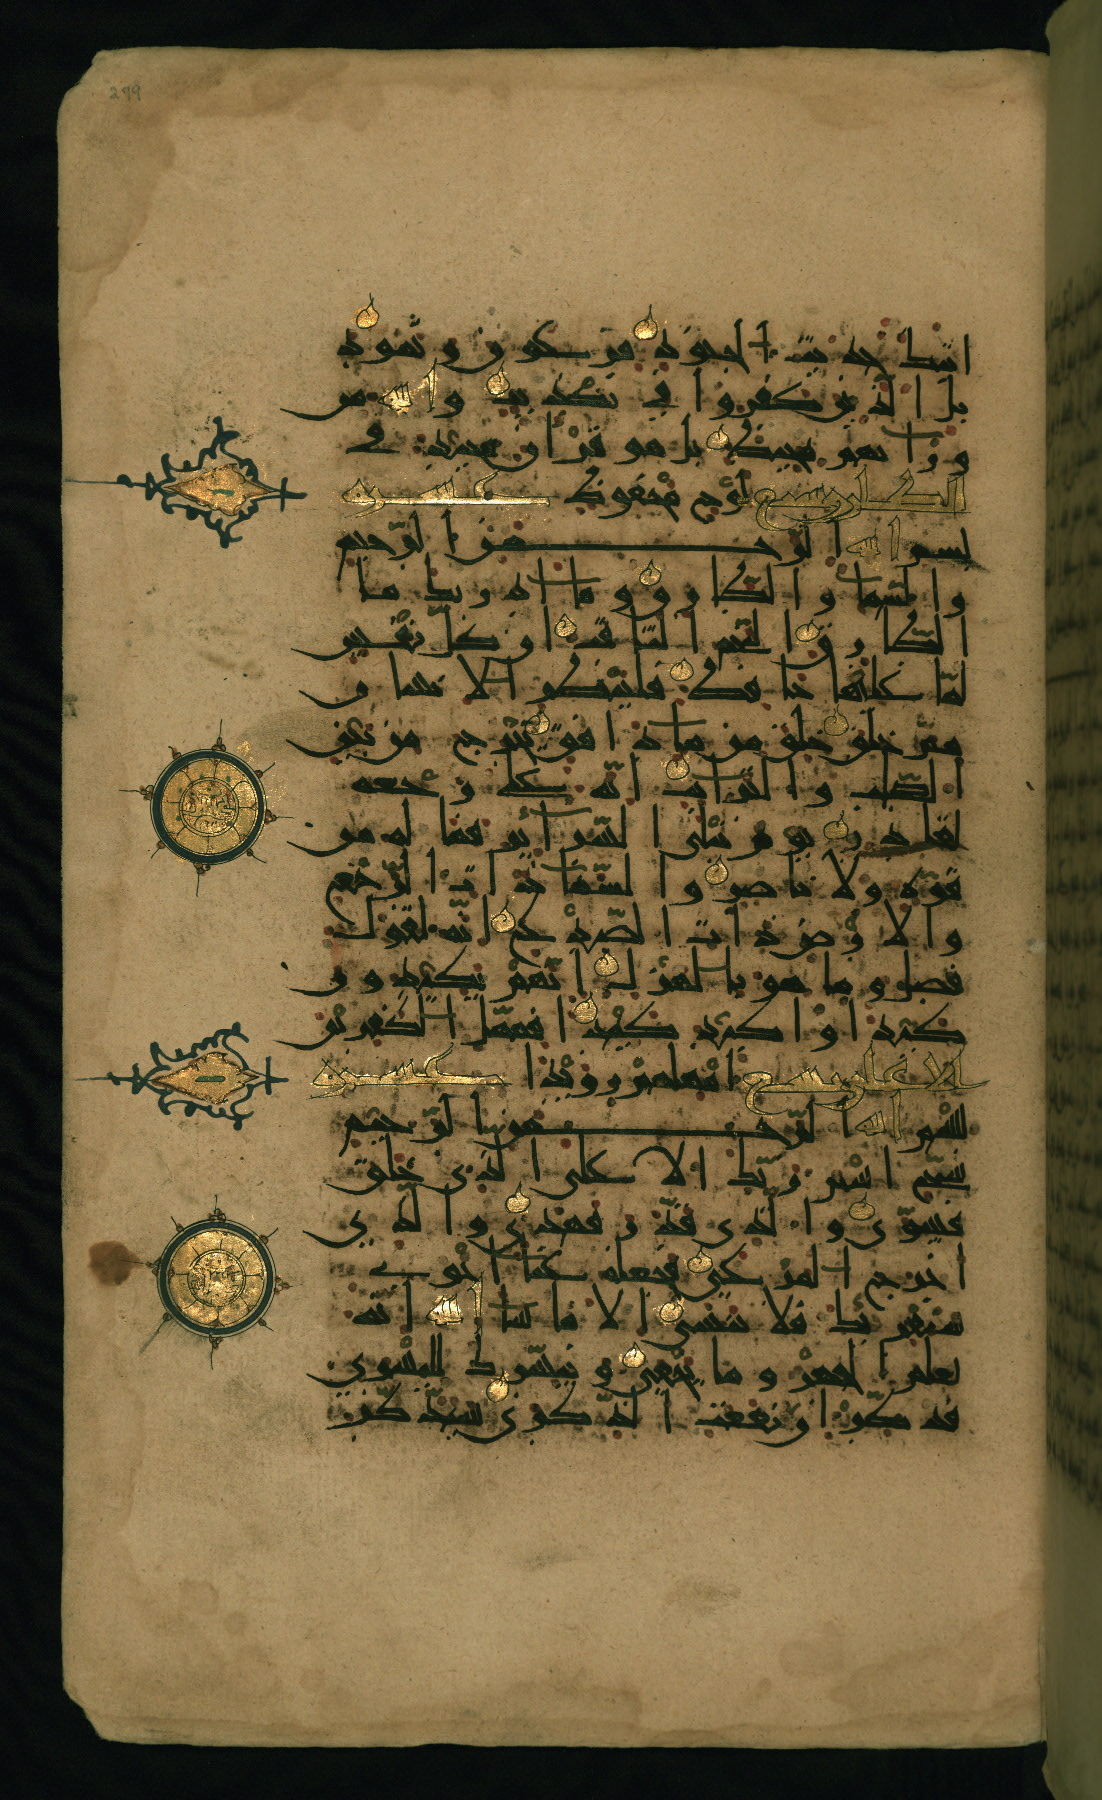 اتىك حديث الجنود فرعون وثمود
بل الذين كفروا في تكذيب والله من
ورائهم محيط بل هو قرآن مجيد في
الطارق سبع لوح محفوظ
بسم الله الرحمن الرحيم
والسماء والطارق وما ادريك ما
الطارق النجم الثاقب ان كل نفس
لما عليها حافظ فلينظر الانسان
مم خلق خلق من ماء دافق يخرج من بين
الصلب والترائب انه على رجعه
لقادر يوم تبلى السرائر فما له من
قوة ولا ناصر والسماء ذات الرجع
والارض ذات الصدع انه لقول
فصل وما هو بالهزل انهم يكيدون
كيدا واكيد كيدا فمهل الكفرين
امهلهم رويدا
بسم الله الرحمن الرحيم
سبح اسم ربك الاعلى الذي خلق
فسوى والذي قدر فهدى والذي
اخرج المرعى فجعله غثاء احوى
سنقرئك فلا تنسى الا ما شاء الله انه
يعلم الجهر وما يخفى ونيسرك لليسرى
فذكر ان نفعت الذكرى سيذكر